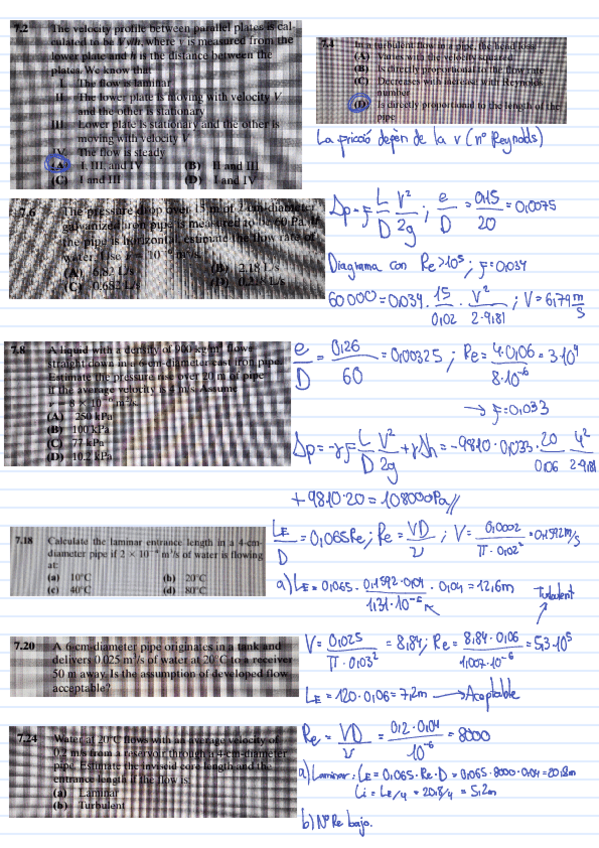 7.2 The velocity profile between parallel plates is cal-
culated to be Vy/h, where y is measured from the
lower plate and h is the distance between the
plates. We know that
I. The flow is laminar
II. The lower plate is moving with velocity V
and the other is stationary
III. Lower plate is stationary and the other is
moving with velocity V
IV. The flow is steady
(A) I, III and IV (B) II and III
(C) I and III (D) I and IV
7.4 In a turbulent flow in a pipe, the head loss
(A) Varies with the velocity squared
(B) Is directly proportional to the flow rate
(C) Decreases with increase with Reynolds
number
(D) Is directly proportional to the length of the
pipe
La fricció depèn de la v (nº Reynolds)
7.6 The pressure drop over 15 m of 2-cm-diameter
galvanized iron pipe is measured to be 60 Pa. If
the pipe is horizontal, estimate the flow rate of
water. Use ν = 10⁻⁶ m²/s.
(A) 6.82 L/s (B) 2.18 L/s
(C) 0.682 L/s (D) 0.218 L/s
Δp = f L/D V²/2g ; e/D = 0,15/20 = 0,0075
Diagrama con Re > 10⁵ ; f = 0,034
60000 = 0,034 · 15/0,02 · V²/2·9,81 ; V = 6,79 m/s
7.8 A liquid with a density of 900 kg/m³ flows
straight down in a 6-cm-diameter cast iron pipe.
Estimate the pressure rise over 20 m of pipe
if the average velocity is 4 m/s. Assume
ν = 8 × 10⁻⁶ m²/s.
(A) 250 kPa
(B) 100 kPa
(C) 77 kPa
(D) 10.2 kPa
e/D = 0,26/60 = 0,00325 ; Re = 4·0,06/8·10⁻⁶ = 3·10⁴
→ f = 0,033
Δp = -γf L/D V²/2g + γΔh = -9810·0,033·20/0,06 4²/2·9,81
+ 9810·20 = 108000Pa//
7.18 Calculate the laminar entrance length in a 4-cm-
diameter pipe if 2 × 10⁻⁴ m³/s of water is flowing
at:
(a) 10°C (b) 20°C
(c) 40°C (d) 80°C
LE/D = 0,065Re ; Re = VD/ν ; V = 0,0002/π·0,02² = 0,1592m/s
a) LE = 0,065 · 0,1592·0,04/1,31·10⁻⁶ · 0,04 = 12,6m
Turbulent
7.20 A 6-cm-diameter pipe originates in a tank and
delivers 0.025 m³/s of water at 20°C to a receiver
50 m away. Is the assumption of developed flow
acceptable?
V = 0,025/π·0,03² = 8,84 ; Re = 8,84·0,06/1,007·10⁻⁶ = 5,3·10⁵
LE = 120·0,06 = 7,2m → Aceptable
7.24 Water at 20°C flows with an average velocity of
0.2 m/s from a reservoir through a 4-cm-diameter
pipe. Estimate the inviscid core length and the
entrance length if the flow is:
(a) Laminar
(b) Turbulent
Re = VD/ν = 0,2·0,04/10⁻⁶ = 8000
a) Laminar: LE = 0,065·Re·D = 0,065·8000·0,04 = 20,8m
Li = LE/4 = 20,8/4 = 5,2m
b) Nº Re bajo.